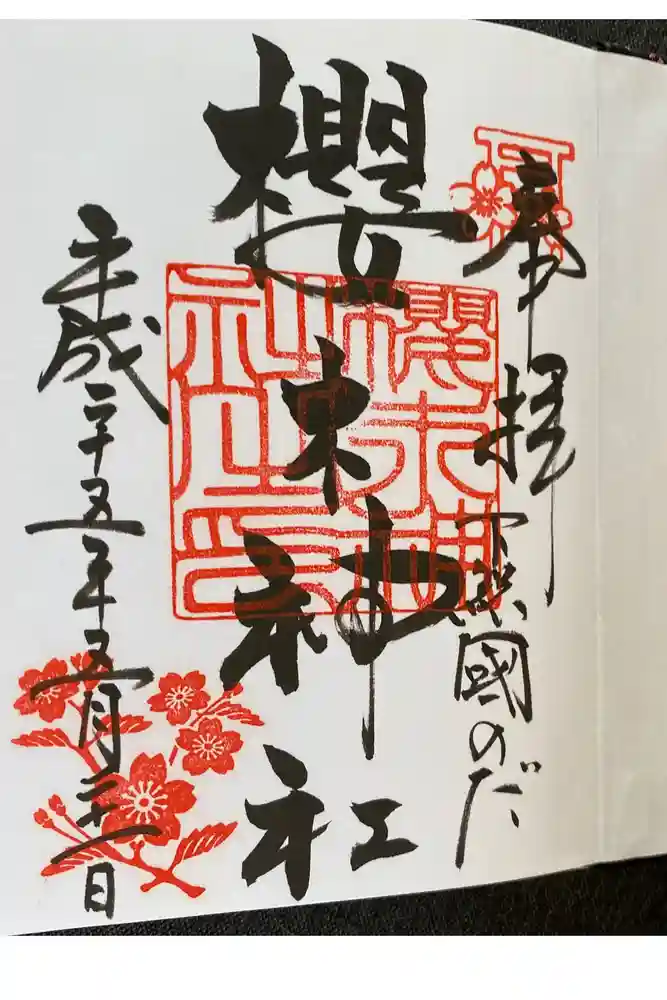 奉拝
下総國のだ
櫻木神社
平成二十五年五月二十一日
櫻木神
社之印